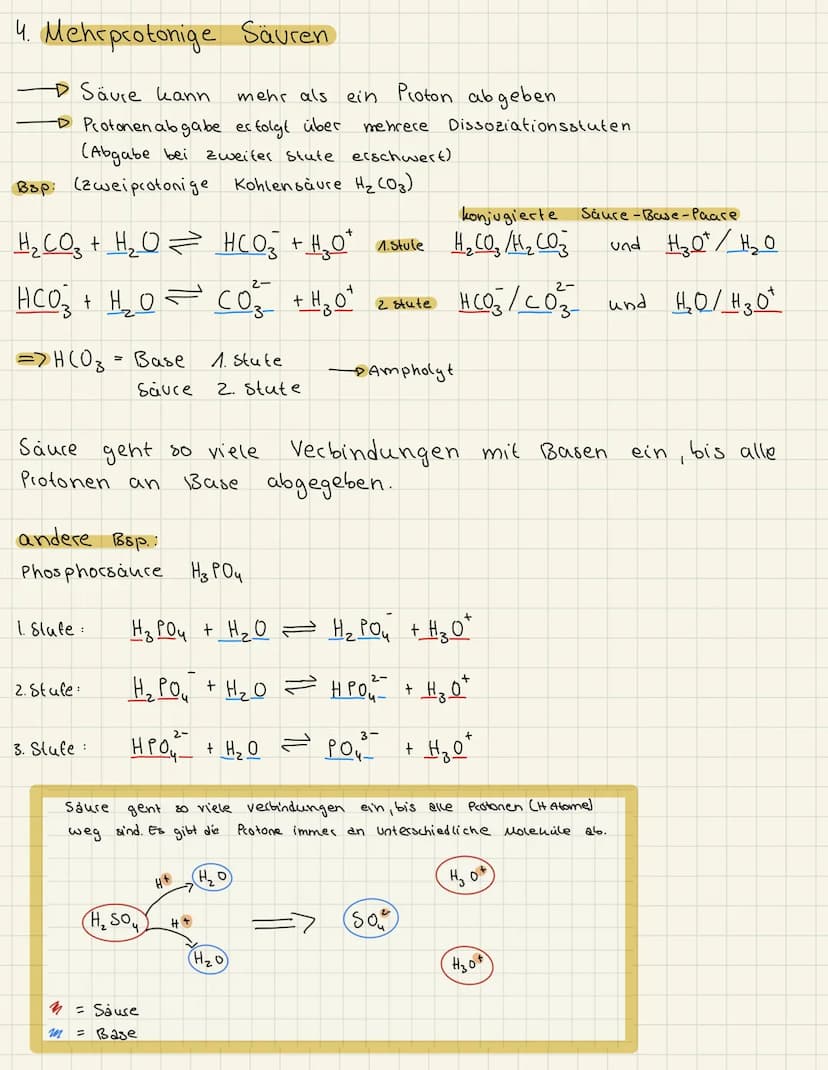 4. Mehrprotonige Säuren
→ Säure kann mehr als ein Proton abgeben
→ Protonenabgabe erfolgt über mehrere Dissoziationsstufen
(Abgabe bei zweiter Stufe erschwert)
Bsp: (zweiprotonige Kohlensäure H₂CO₃)
konjugierte Säure-Base-Paare
H₂CO₃ + H₂O ⇌ HCO₃⁻ + H₃O⁺ 1. Stufe H₂CO₃/H₂CO₃⁻ und H₃O⁺/H₂O
HCO₃⁻ + H₂O ⇌ CO₃²⁻ + H₃O⁺ 2 Stufe HCO₃⁻/CO₃²⁻ und H₂O/H₃O⁺
=> HCO₃ = Base 1. Stufe
Säure 2. Stufe → Ampholyt
Säure geht so viele Verbindungen mit Basen ein, bis alle
Protonen an Base abgegeben.
andere Bsp.:
Phosphorsäure H₃PO₄
1. Stufe: H₃PO₄ + H₂O ⇌ H₂PO₄⁻ + H₃O⁺
2. Stufe: H₂PO₄⁻ + H₂O ⇌ HPO₄²⁻ + H₃O⁺
3. Stufe: HPO₄²⁻ + H₂O ⇌ PO₄³⁻ + H₃O⁺
Säure geht so viele Verbindungen ein, bis alle Protonen (H Atome)
weg sind. Es gibt die Protone immer an unterschiedliche Moleküle ab.
H⁺ H₂O H₃O⁺
H₂SO₄ H⁺ ⇒ SO₄²
H₂O H₃O⁺
= Säure
= Base